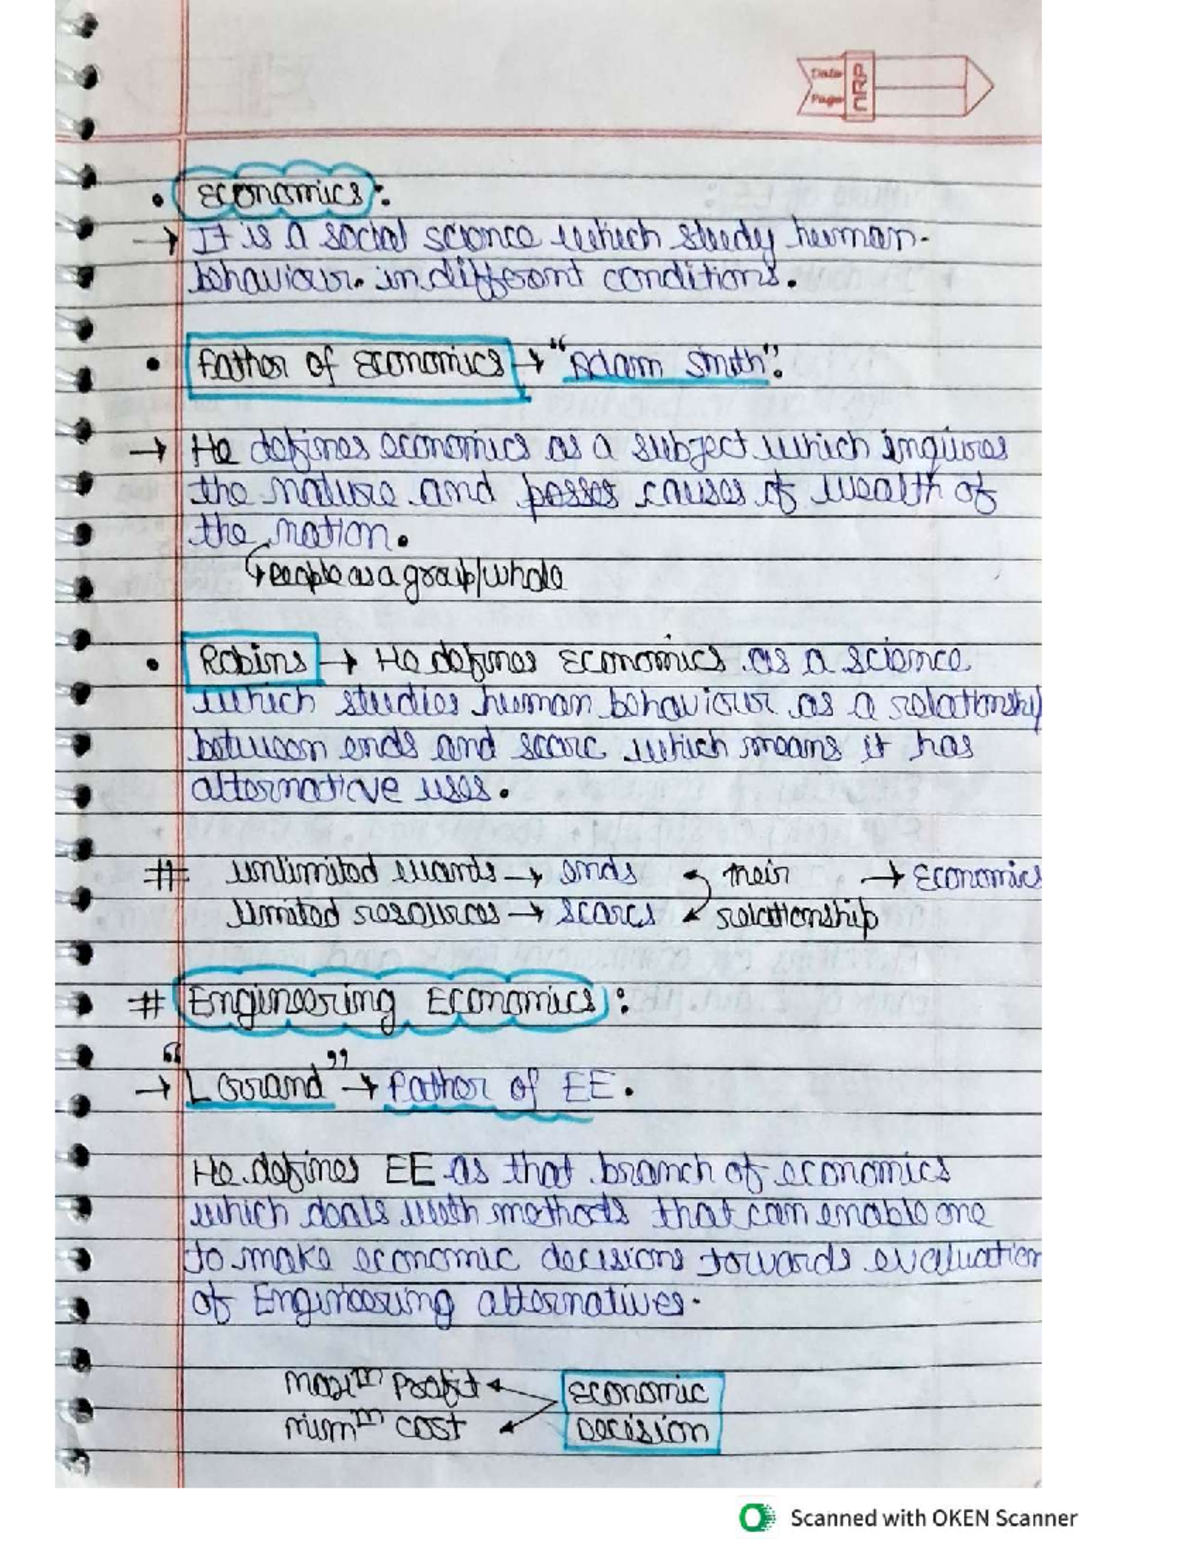 Date
Page
CRP
• Economics:
→ It is a social science which study human
behaviour in different conditions.
• Father of Economics → "Adam Smith".
→ He defines economics as a subject which inquires
the nature and posses causes of wealth of
the nation.
↳ People as a group/whole
• Robins → He defines Economics as a science
which studies human behaviour as a relationship
between ends and scarc which means it has
alternative uses.
# Unlimited wants → ends their → Economics
limited resources → scarcs relationship
# Engineering Economics:
→ "Lorrand" → Father of EE.
He defines EE as that branch of economics
which deals with methods that can enable one
to make economic decisions towards evaluation
of Engineering alternatives.
maxim profit ← Economic
mimm cost ← Decision
Scanned with OKEN Scanner